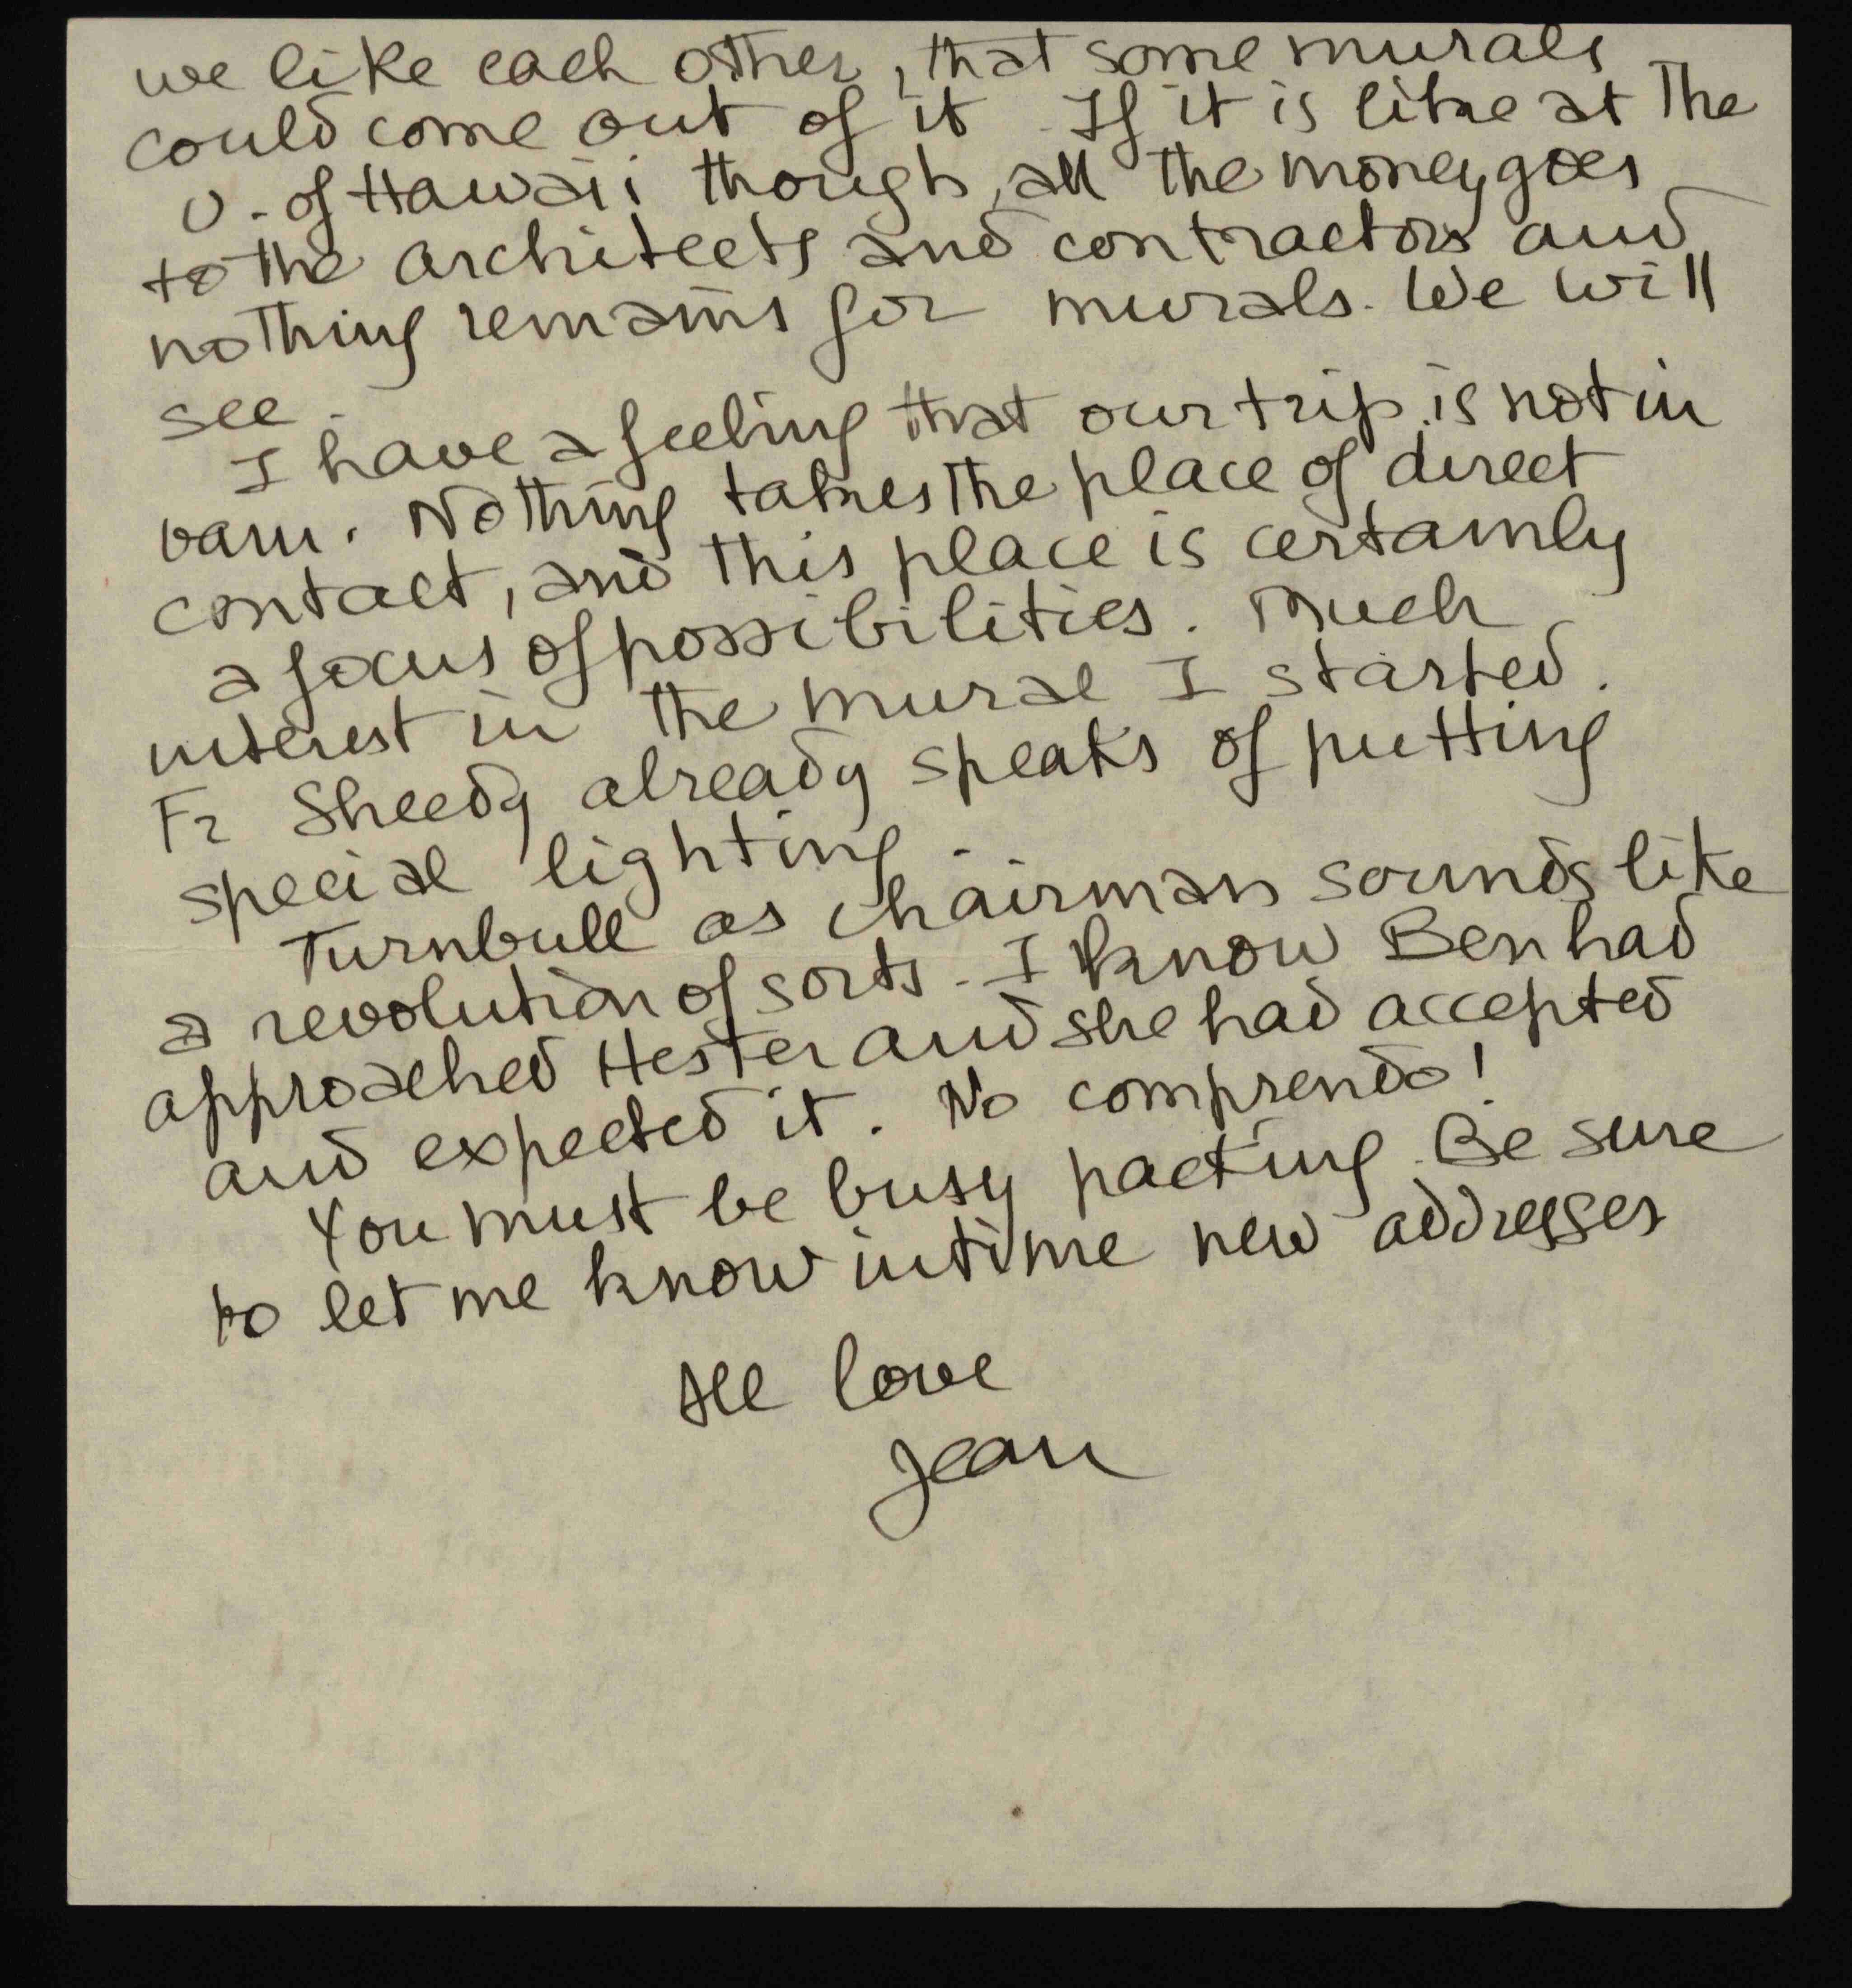 we like each other, that some murals
could come out of it. If it is like at the
U. of Hawaii though, all the money goes
to the architects and contractors and
nothing remains for murals. We will
see.
I have a feeling that our trip is not in
vain. Nothing takes the place of direct
contact, and this place is certainly
a focus of possibilities. Much
interest in the mural I started.
Fr Sheedy already speaks of putting
special lighting.
Turnbull as chairman sounds like
a revolution of sorts. I know Ben had
approached Hester and she had accepted
and expected it. No comprendo!
You must be busy packing. Be sure
to let me know in time new addresses
All love
Jean